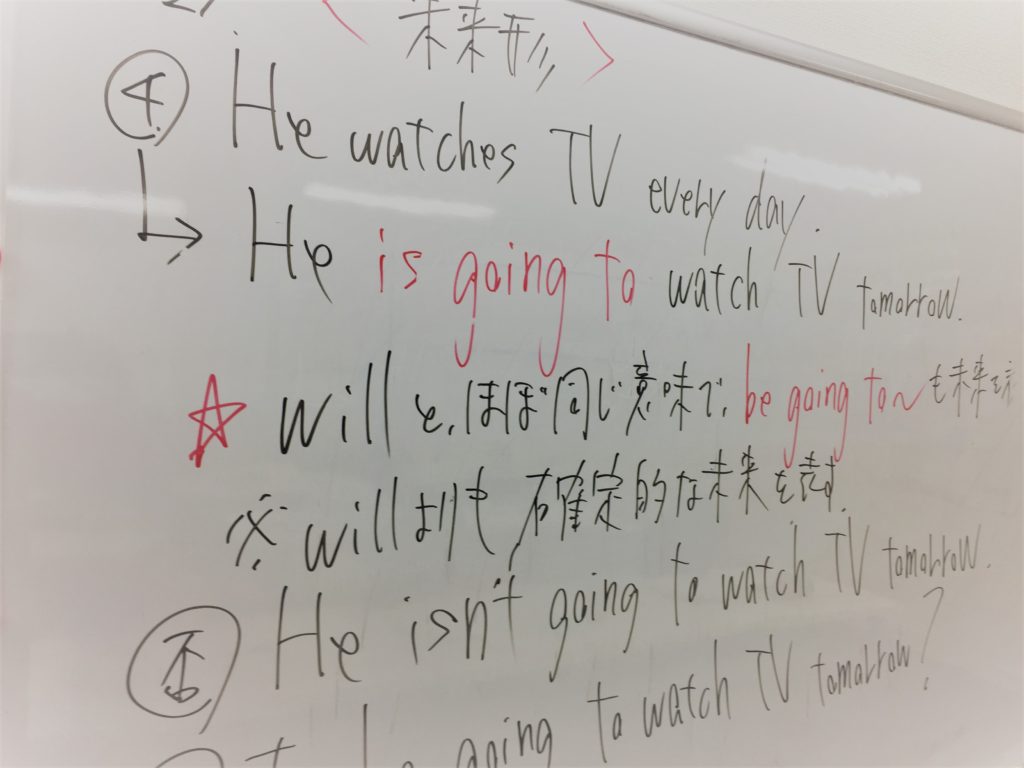 <未来形>
He watches TV every day.
→ He is going to watch TV tomorrow.
☆ willと、ほぼ同じ意味で、be going to~も未来を
※ willよりも 確定的な未来を表す
否 He isn't going to watch TV tomorrow.
going to watch TV tomorrow?